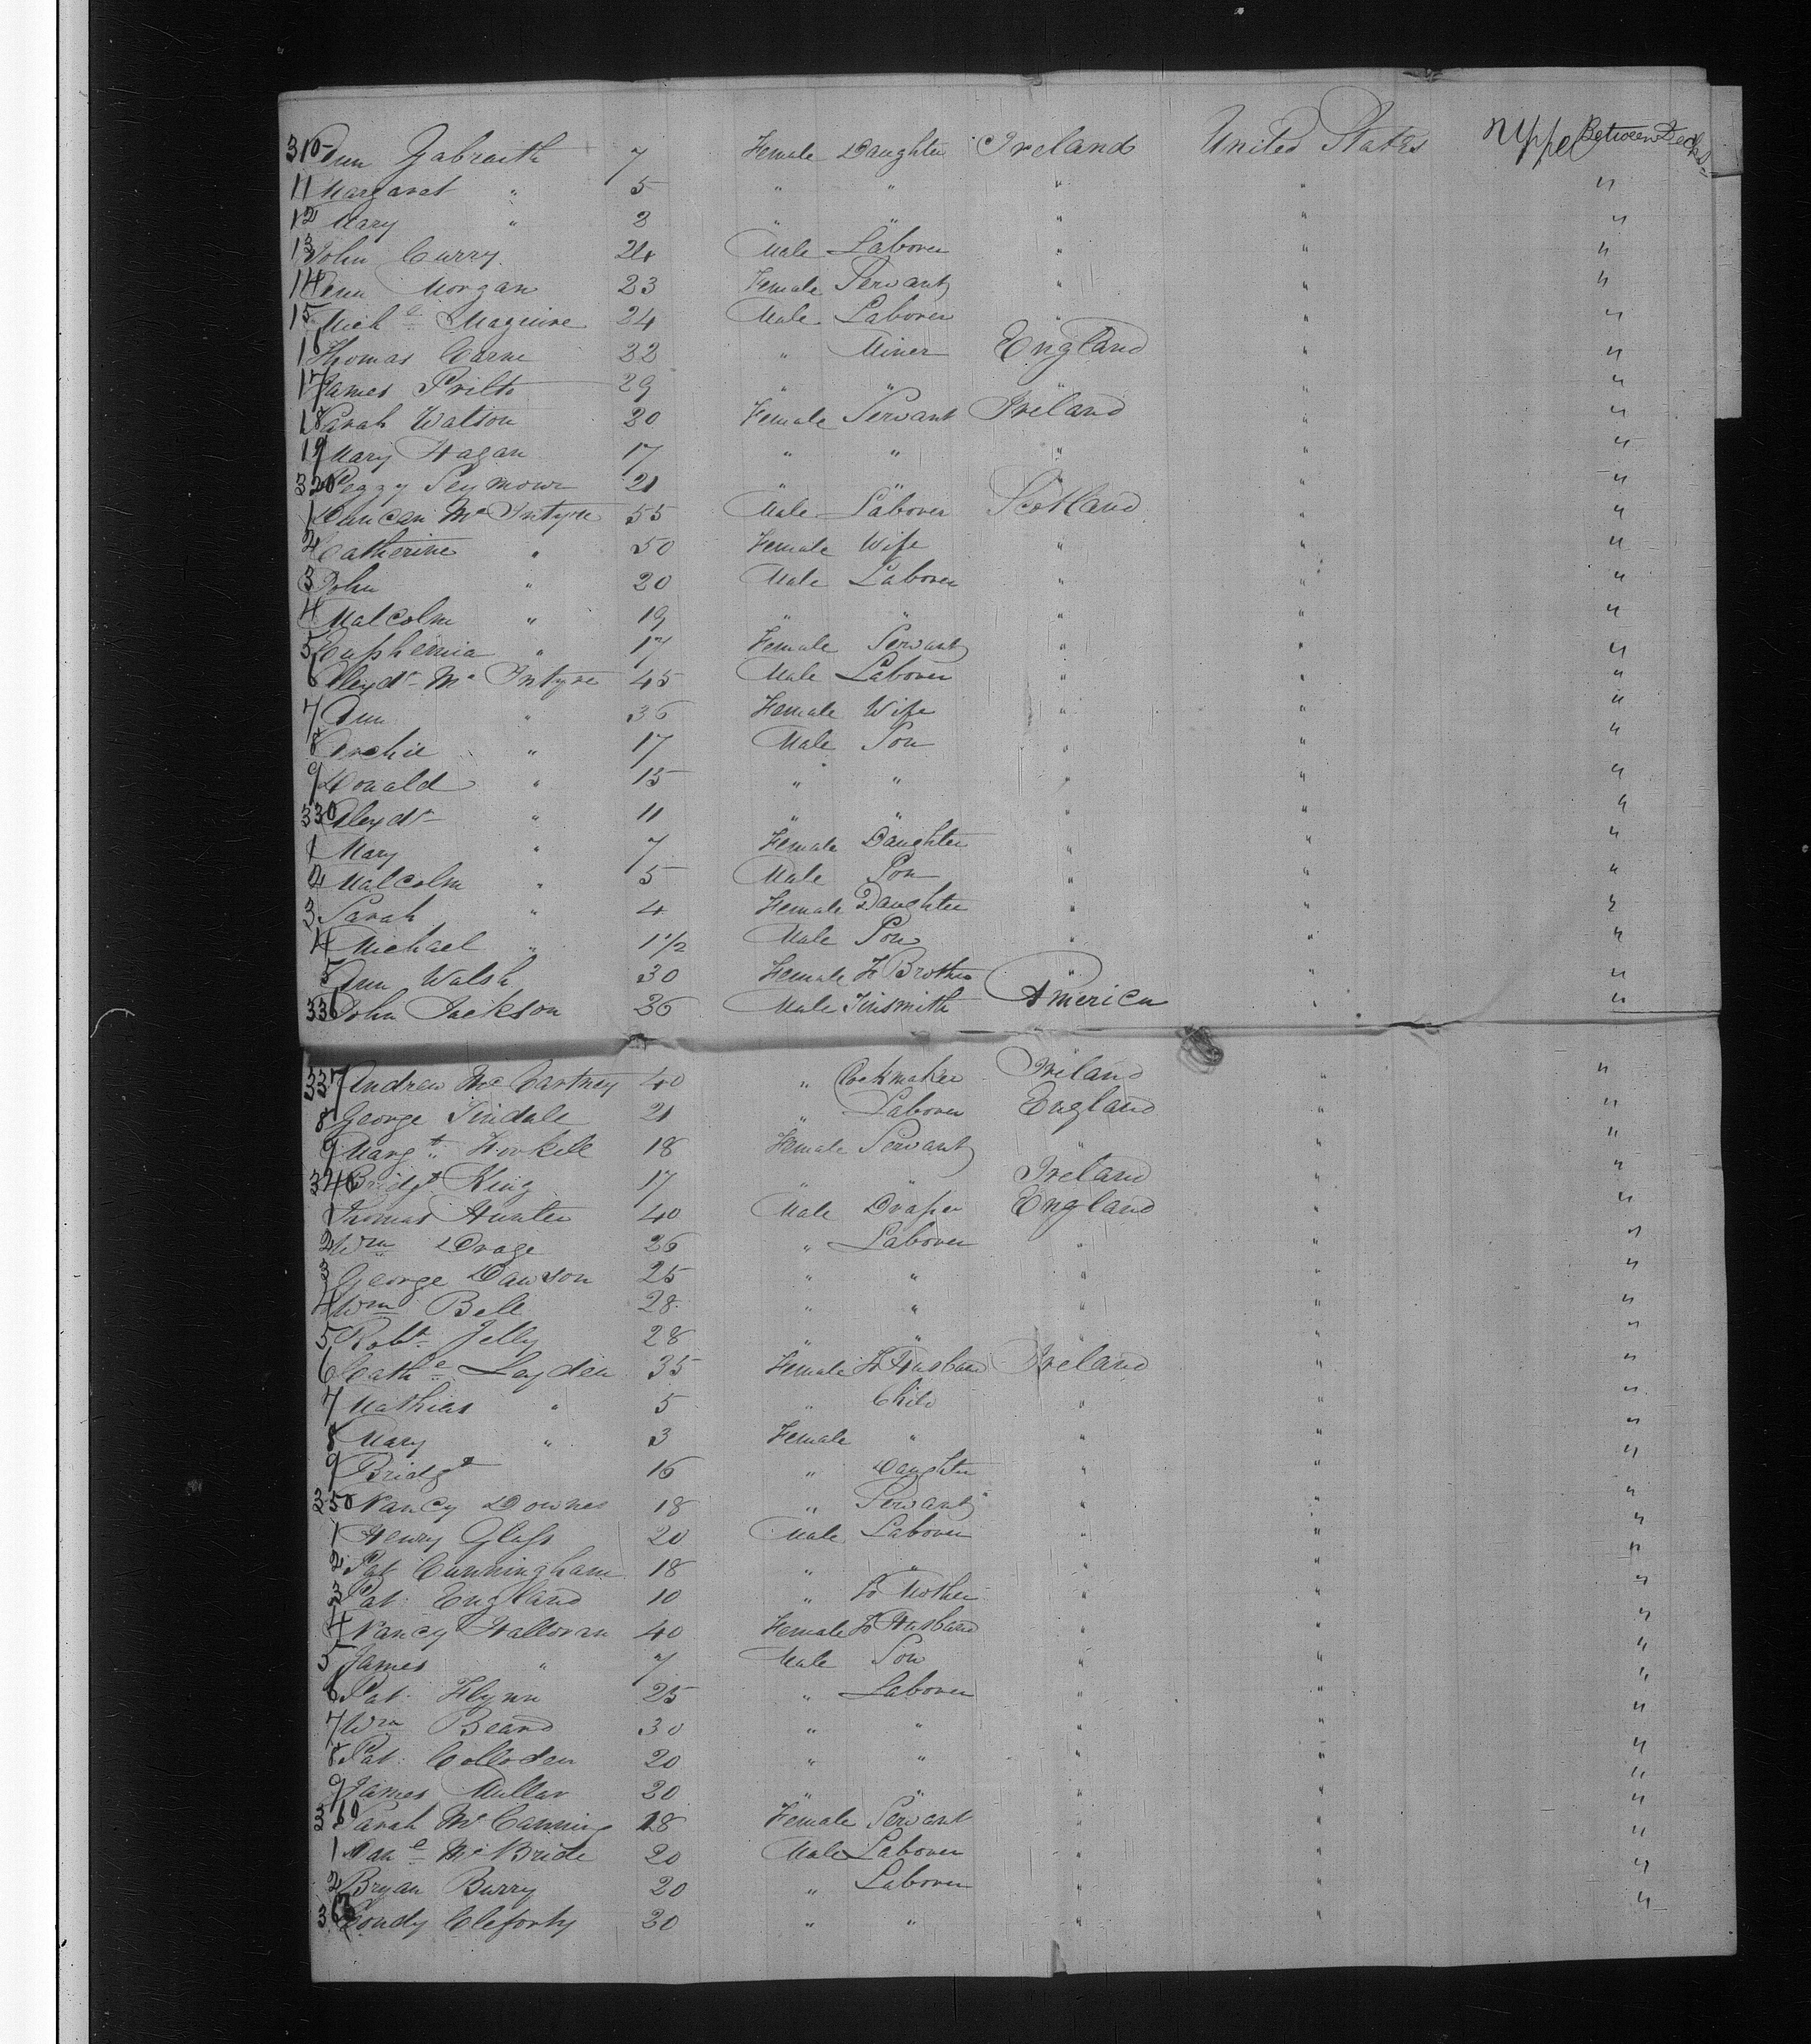 310 Ann Gabraith 7 Female Daughter Ireland United States Upper Between Decks
11 Margaret " 5 " " " " "
12 Mary " 3 " " " " "
13 John Curry 24 Male Laborer " " "
14 Ann Morgan 23 Female Servant " " "
15 Mich.l Maguire 24 Male Laborer " " "
16 Thomas Carne 22 " Miner England " "
17 James 29 " " " " "
18 Sarah Watson 20 Female Servant Ireland " "
19 Mary Hagan 17 " " " " "
320 Peggy Seymour 21 " " " " "
1 Duncan McIntyre 55 Male Laborer Scotland " "
2 Catherine " 50 Female Wife " " "
3 John " 20 Male Laborer " " "
4 Malcolm " 19 " " " " "
5 Euphemia " 17 Female Servant " " "
6 Alexdr McIntyre 45 Male Laborer " " "
7 Ann " 36 Female Wife " " "
8 Archie " 17 Male Son " " "
9 Donald " 15 " " " " "
330 Alexdr " 11 " " " " "
1 Mary " 7 Female Daughter " " "
2 Malcolm " 5 Male Son " " "
3 Sarah " 4 Female Daughter " " "
4 Michael " 1 1/2 Male Son " " "
5 Ann Walsh 30 Female To Brother " " "
336 John Jackson 36 Male Tinsmith America " "
337 Andrew McCartney 40 " Ireland " "
8 George Tindale 21 " Laborer England " "
9 Margt 18 Female Servant " " "
340 Bridgt King 17 " " Ireland " "
1 Thomas Hunter 40 Male Draper England " "
2 Wm Drage 26 " Laborer " " "
3 George Dawson 25 " " " " "
4 Wm Bell 28 " " " " "
5 Robt Jelly 28 " " " " "
6 Cathe Leyden 35 Female To Husband Ireland " "
7 Mathias " 5 " Child " " "
8 Mary " 3 Female " " " "
9 Bridgt 16 " Daughter " " "
350 Nancy Downes 18 " Servant " " "
1 Henry Glass 20 Male Laborer " " "
2 Pat Cunningham 18 " " " " "
3 Pat: England 10 " To Mother " " "
4 Nancy Halloran 40 Female To Husband " " "
5 James " 7 Male Son " " "
6 Pat: Flynn 25 " Laborer " " "
7 Wm Beard 30 " " " " "
8 Pat: Colloden 20 " " " " "
9 James Mullar 20 " " " " "
360 Sarah McCanning 18 Female Servant " " "
1 Dane McBride 20 Male Laborer " " "
2 Bryan Burry 20 " Laborer " " "
363 Condy 20 " " " " "